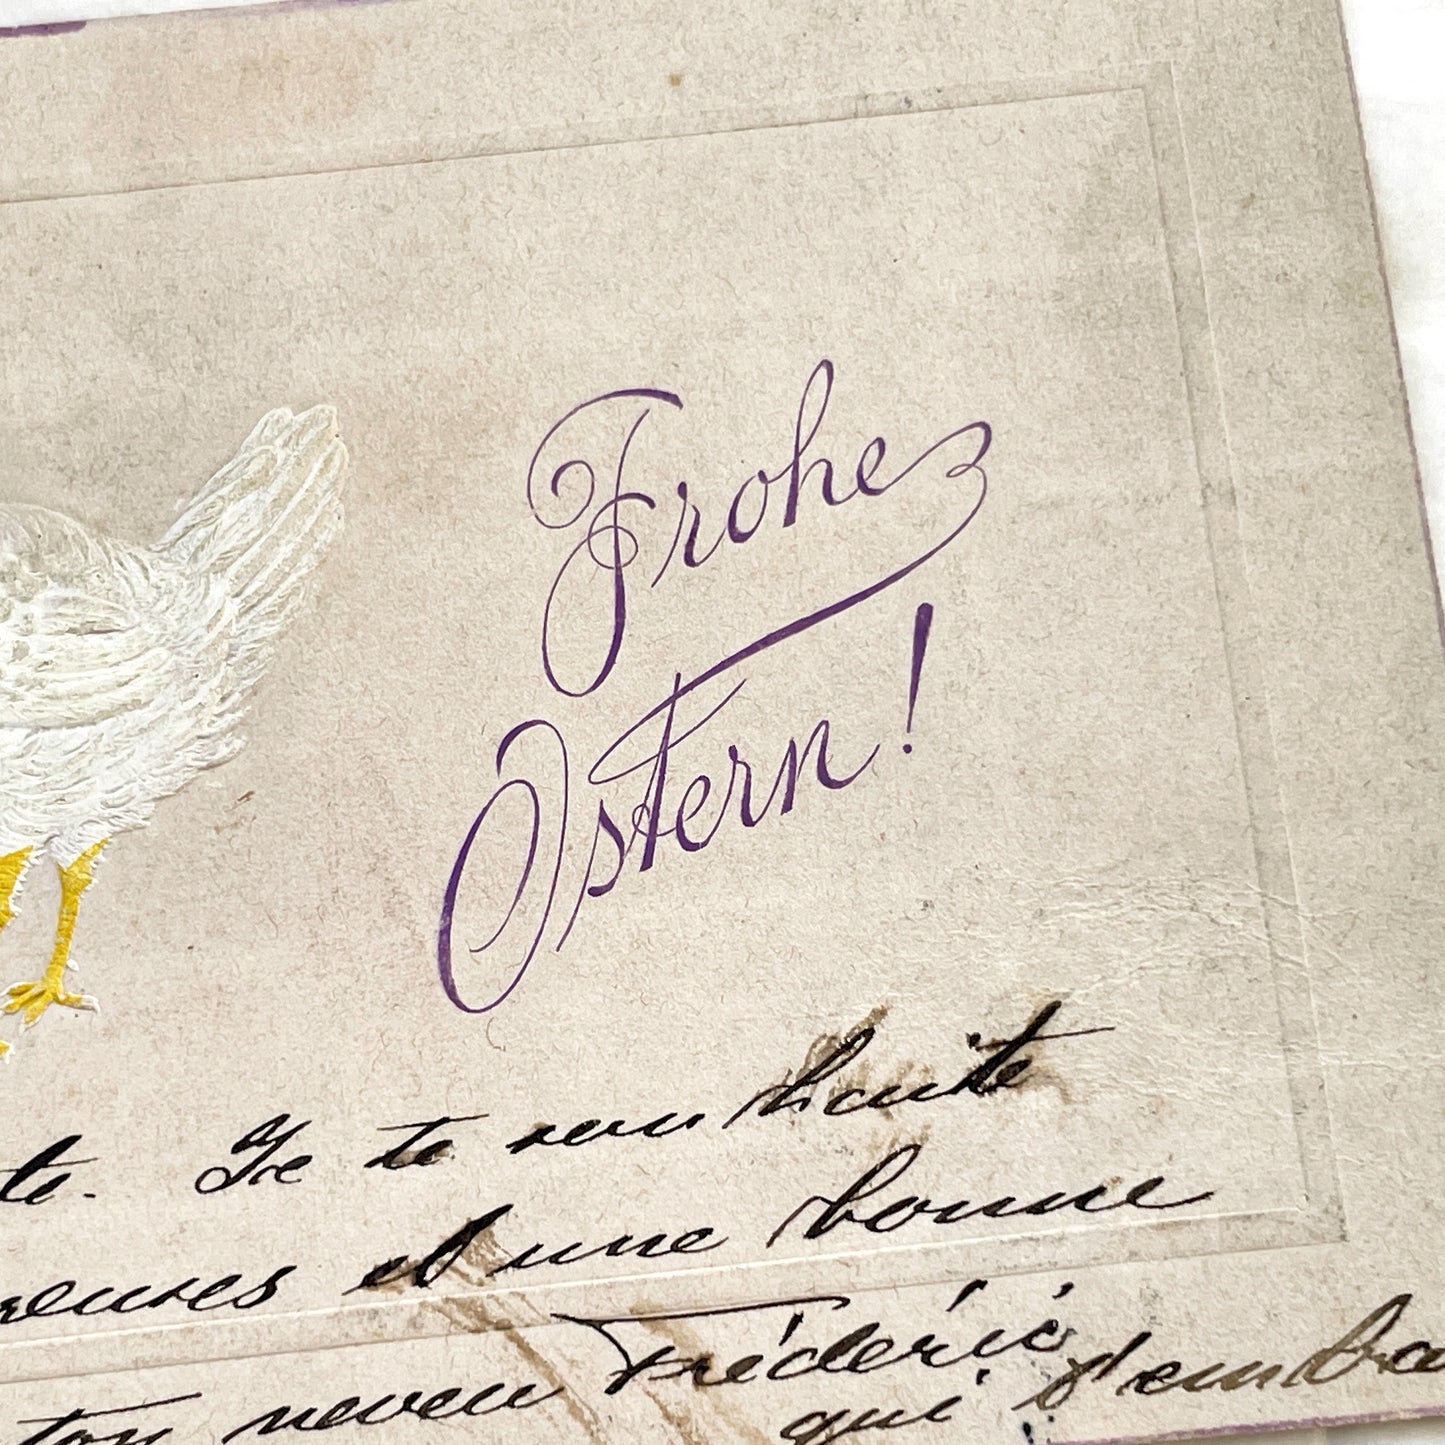 Frohe
Ostern!
te. Je te souhaite
reuses et une bonne
ton neveu Frédéric
qui